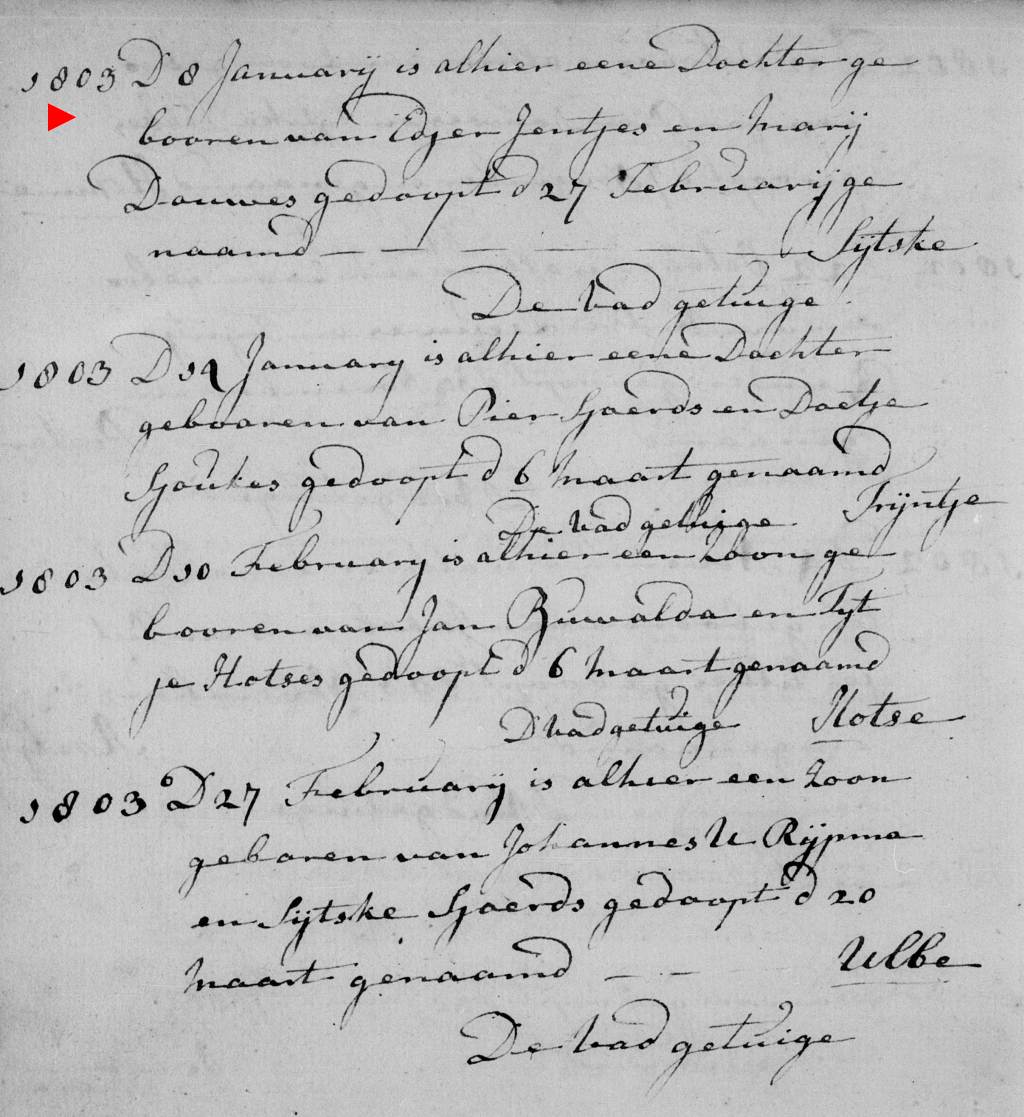 1803 D 8 Januarij is alhier eene Dochter ge
booren van Edger Jentjes en Marij
Douwes gedoopt d 27 Februarij ge
naamd — — — — — — Sijtske
De Vad getuige
1803 D 14 January is alhier eene Dochter
gebooren van Pier Sjoerds en Doetje
Sjoukes gedoopt d 6 Maart genaamd
De Vad getuige. Trijntje
1803 D 10 February is alhier een Zoon ge
booren van Jan Buwalda en Tyt
je Hotses gedoopt d 6 Maart genaamd
D Vad getuige Hotse
1803 D 27 Februarij is alhier een Zoon
geboren van Johannes U Rijpma
en Sijtske Sjoerds gedoopt d 20
Maart genaamd — — Ulbe
De Vad getuige